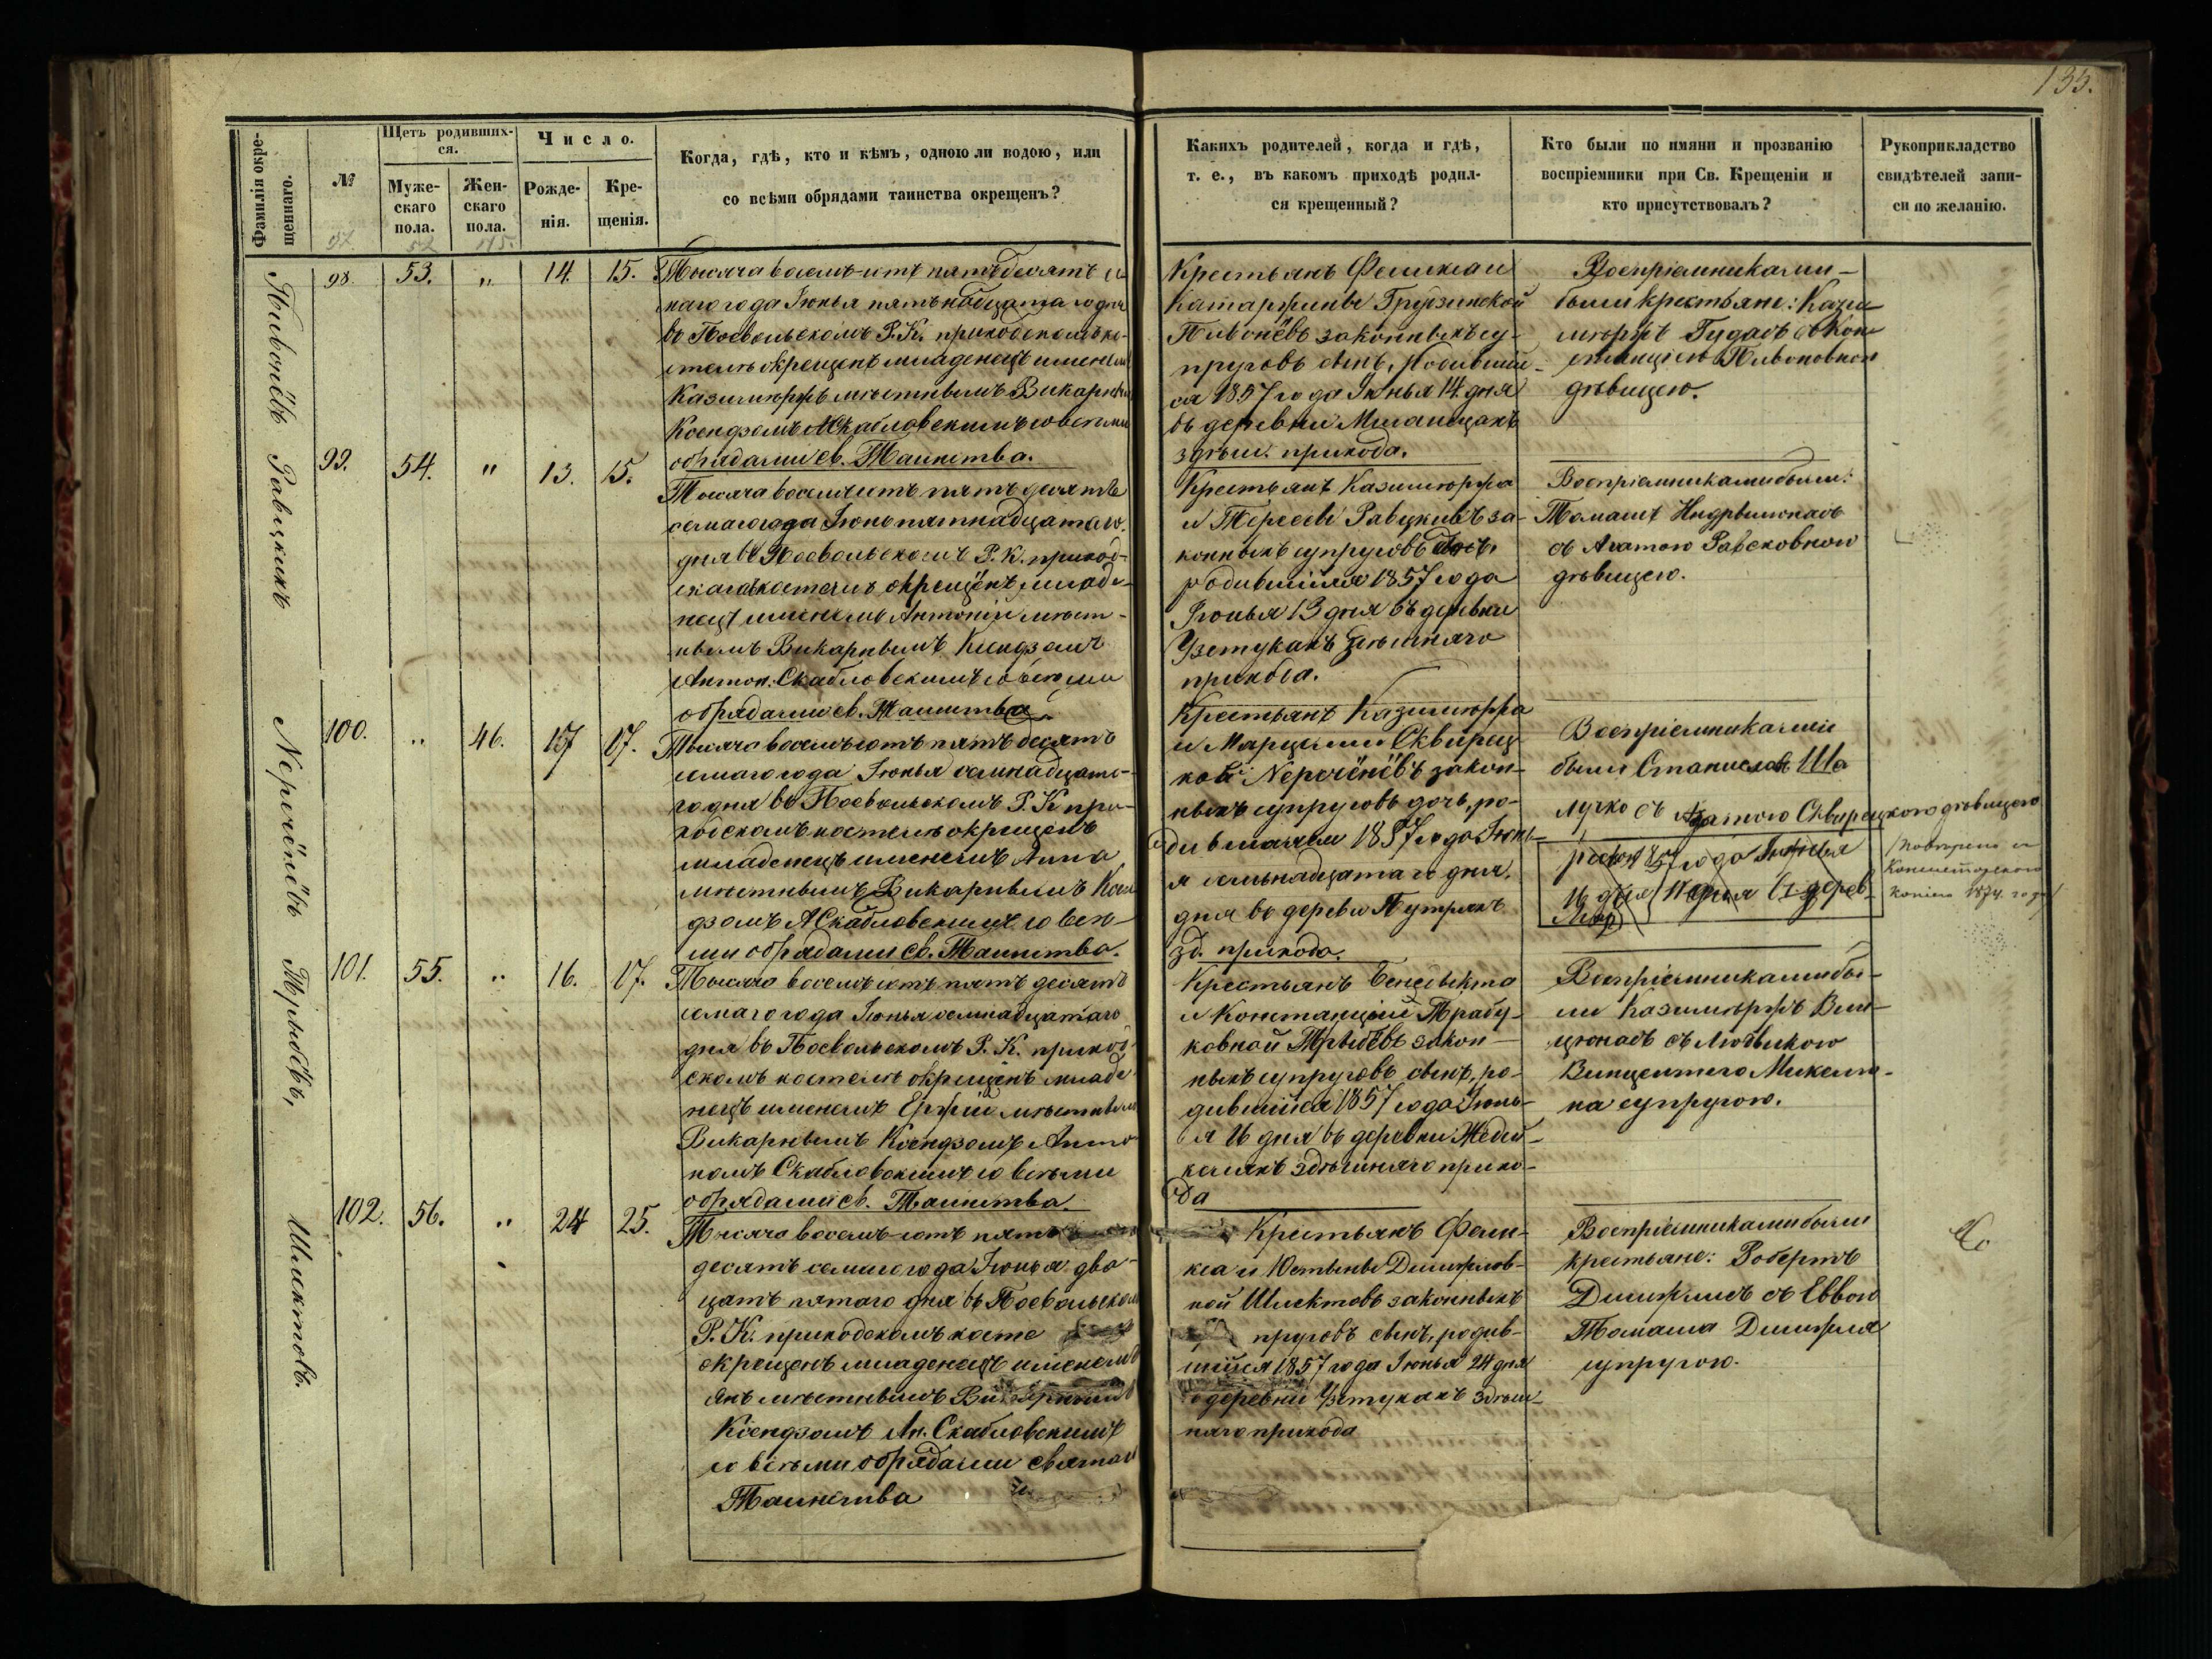 135.
Фамилія окре-
щеннаго.
№
Щетъ родивших-
ся.
Муже-
скаго
пола.
Жен-
скаго
пола.
Число.
Рожде-
нія.
Кре-
щенія.
Когда, гдѣ, кто и кѣмъ, одною ли водою, или
со всѣми обрядами таинства окрещенъ?
Какихъ родителей, когда и гдѣ,
т. е., въ какомъ приходѣ родил-
ся крещенный?
Кто были по имяни и прозванію
воспріемники при Св. Крещеніи и
кто присутствовалъ?
Рукоприкладство
свидѣтелей запи-
си по желанію.
Пивонёвъ
98.
53.
"
14.
15.
Тысяча восемь-сотъ пятьдесятъ се-
маго года Іюнья пятьнадцатаго дня
въ Посвольскомъ Р. К. приходскомъ ко-
стелѣ окрещенъ младенецъ именемъ
Казимѣржъ мѣстнымъ Викарнымъ
Ксендзомъ А Скабловскимъ со всѣми
обрядами св. Таинства.
Крестьянъ Феликса и
Катаржины Грудзинской
Пивонёвъ законныхъ су-
пруговъ сынъ, родивший-
ся 1857 года Іюнья 14 дня
въ деревни Миганцахъ
здѣш. прихода.
Воспріемниками
были крестьяне: Кази-
мѣржъ Гудасъ съ Кон-
станціею Пивоновною
дѣвицею.
Равицкихъ
99.
54.
"
13.
15.
Тысяча восемьсотъ пятьдесятъ
семаго года Іюнь пятнадцатаго
дня въ Посвольскомъ Р. К. приход-
скомъ костелѣ окрещёнъ младе-
нецъ именемъ Антоній мѣст-
нымъ Викарнымъ Ксендзомъ
Антон. Скабловскимъ со всѣми
обрядами св. Таинства.
Крестьянъ Казимѣржа
и Терессы Равицкихъ за-
конныхъ супруговъ сынъ,
родившийся 1857 года
Іюнья 13 дня въ деревни
Узетукахъ здѣшняго
прихода.
Воспріемниками были:
Томашъ
съ Агатою Равсковною
дѣвицею.
Nеречёнёвъ
100.
"
46.
17
17.
Тысяча восемьсотъ пятьдесятъ
семаго года Іюнья семнадцата-
го дня въ Посвольскомъ Р. К при-
ходскомъ костелѣ окрещенъ
младенецъ именемъ Анна
мѣстнымъ Викарнымъ Ксен-
дзомъ А Скабловскимъ со всѣ-
ми обрядами св. Таинства.
Крестьянъ Казимѣржа
и Марцелли Сквирец-
кой Nеречёнёвъ закон-
ныхъ супруговъ дочь, ро-
дившаяся 1857 года Іюнь-
я семьнадцатаго дня,
дня въ деревни Путряхъ
зд. прихода.
Воспріемниками
были Станиславъ Ша
лучко съ Агатою Сквирецкою дѣвицею
1857 года Іюнья
16 дня въ дерев-
Повѣрено съ
Консисторскою
копіею 1874. года
Трыбёвъ,
101.
55.
"
16.
17.
Тысяча восемьсотъ пятьдесятъ
семаго года Іюнья семнадцатаго
дня въ Посвольскомъ Р. К. приход-
скомъ костелѣ окрещёнъ младе-
нецъ именемъ Ержій мѣстнымъ
Викарнымъ Ксендзомъ Анто-
номъ Скабловскимъ со всѣми
обрядами св. Таинства.
Крестьянъ Бенедыкта
и Констанціи Трабу-
ковной Трыбёвъ закон-
ныхъ супруговъ сынъ, ро-
дившийся 1857 года Іюнь-
я 16 дня въ деревни Жедей-
келяхъ здѣшняго прихо-
да
Воспріемниками бы-
ли Казимѣржъ Вин-
цюнасъ съ Людвикою
Винцентего Микели-
на супругою.
Шлктовъ.
102.
56.
"
24
25.
Тысяча восемь-сотъ пять
десятъ семаго года Іюнья два-
цать пятаго дня въ Посвольскомъ
Р. К. приходскомъ косте
окрещенъ младенецъ именемъ
Янъ мѣстнымъ Викарнымъ
Ксендзомъ Ан. Скабловскимъ
со всѣми обрядами святаго
Таинства
Крестьянъ Фели-
кса и Юстыны Димжлов-
ной Шлектовъ законныхъ
пруговъ сынъ, родив-
шийся 1857 года Іюнья 24 дня
деревни Узетукахъ здѣш-
няго прихода
Воспріемниками были
крестьяне: Робертъ
Димжлисъ съ Еввою
Томаша Димжля
супругою.